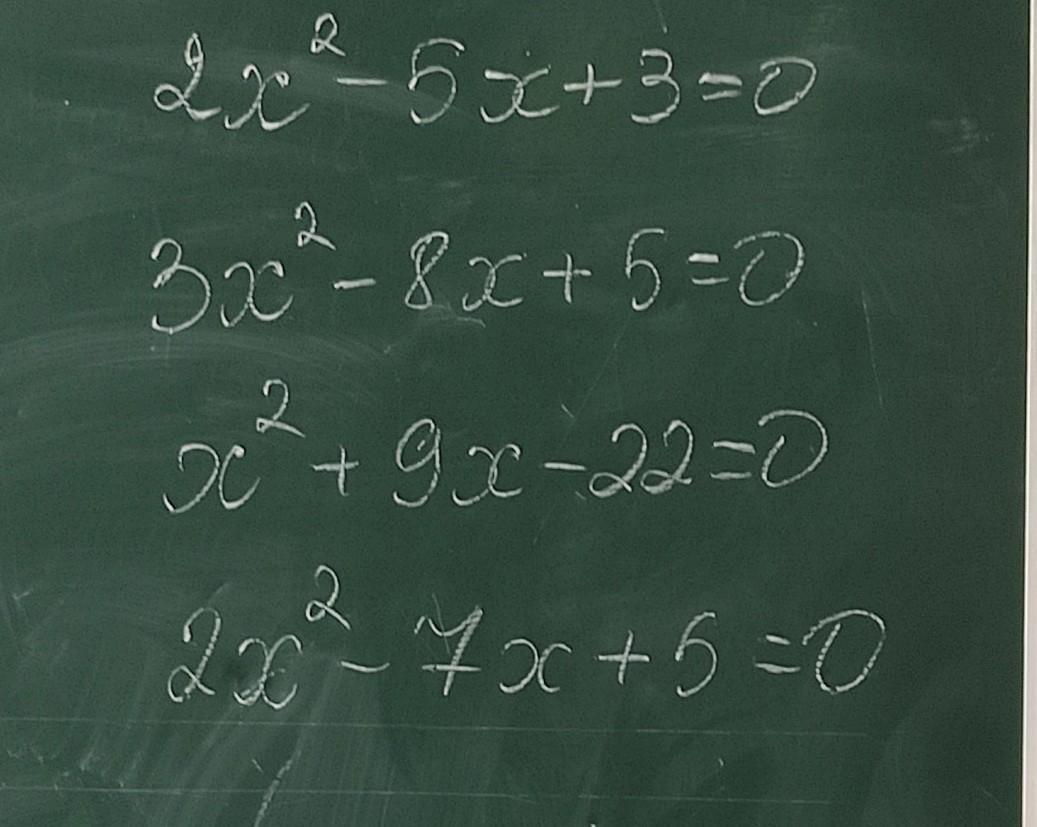 2x² - 5x + 3 = 0
3x² - 8x + 5 = 0
x² + 9x - 22 = 0
2x² - 7x + 5 = 0